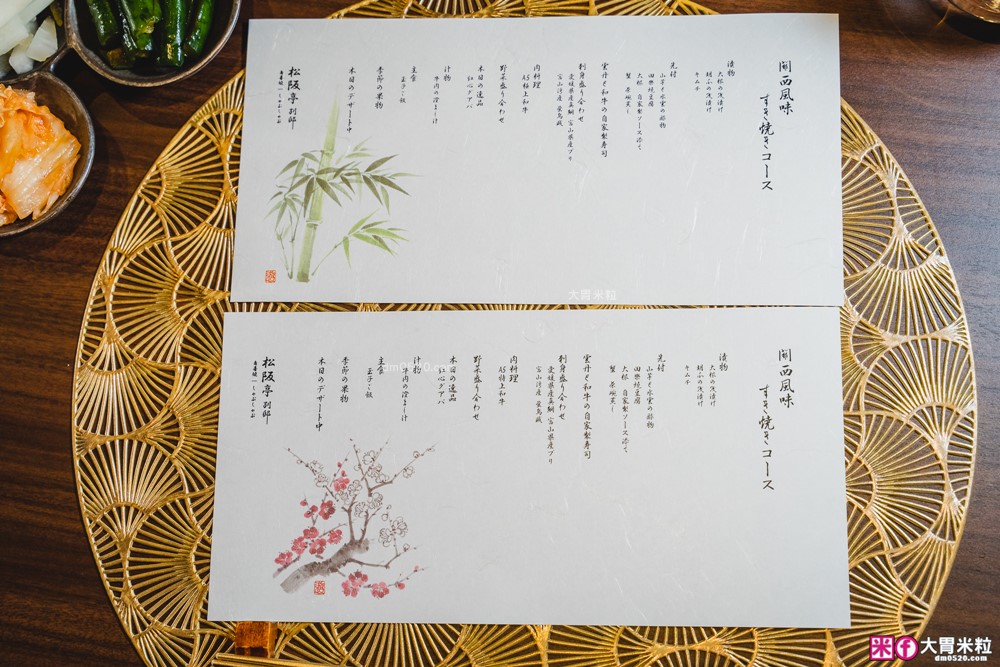 関西風味
すき焼きコース
漬物
大根の浅漬け
胡瓜の浅漬け
キムチ
先付
山芋と水雲の酢物
田楽焼豆腐
大根 自家製ソース添て
蟹 茶碗蒸し
雲丹と和牛の自家製寿司
刺身盛り合わせ
愛媛県産真鯛 富山県産ブリ
肉料理
A5極上和牛
野菜盛り合わせ
本日の逸品
紅心グアバ
汁物
牛肉の澄まし汁
主食
玉子とじ飯
季節の果物
本日のデザート中
松阪亭別邸
大胃米粒
関西風味
すき焼きコース
漬物
大根の浅漬け
胡瓜の浅漬け
キムチ
先付
山芋と水雲の酢物
田楽焼豆腐
大根 自家製ソース添て
蟹 茶碗蒸し
雲丹と和牛の自家製寿司
刺身盛り合わせ
愛媛県産真鯛 富山県産ブリ
肉料理
A5極上和牛
野菜盛り合わせ
本日の逸品
紅心グアバ
汁物
牛肉の澄まし汁
主食
玉子とじ飯
季節の果物
本日のデザート中
松阪亭別邸
大胃米粒
dm0520.com